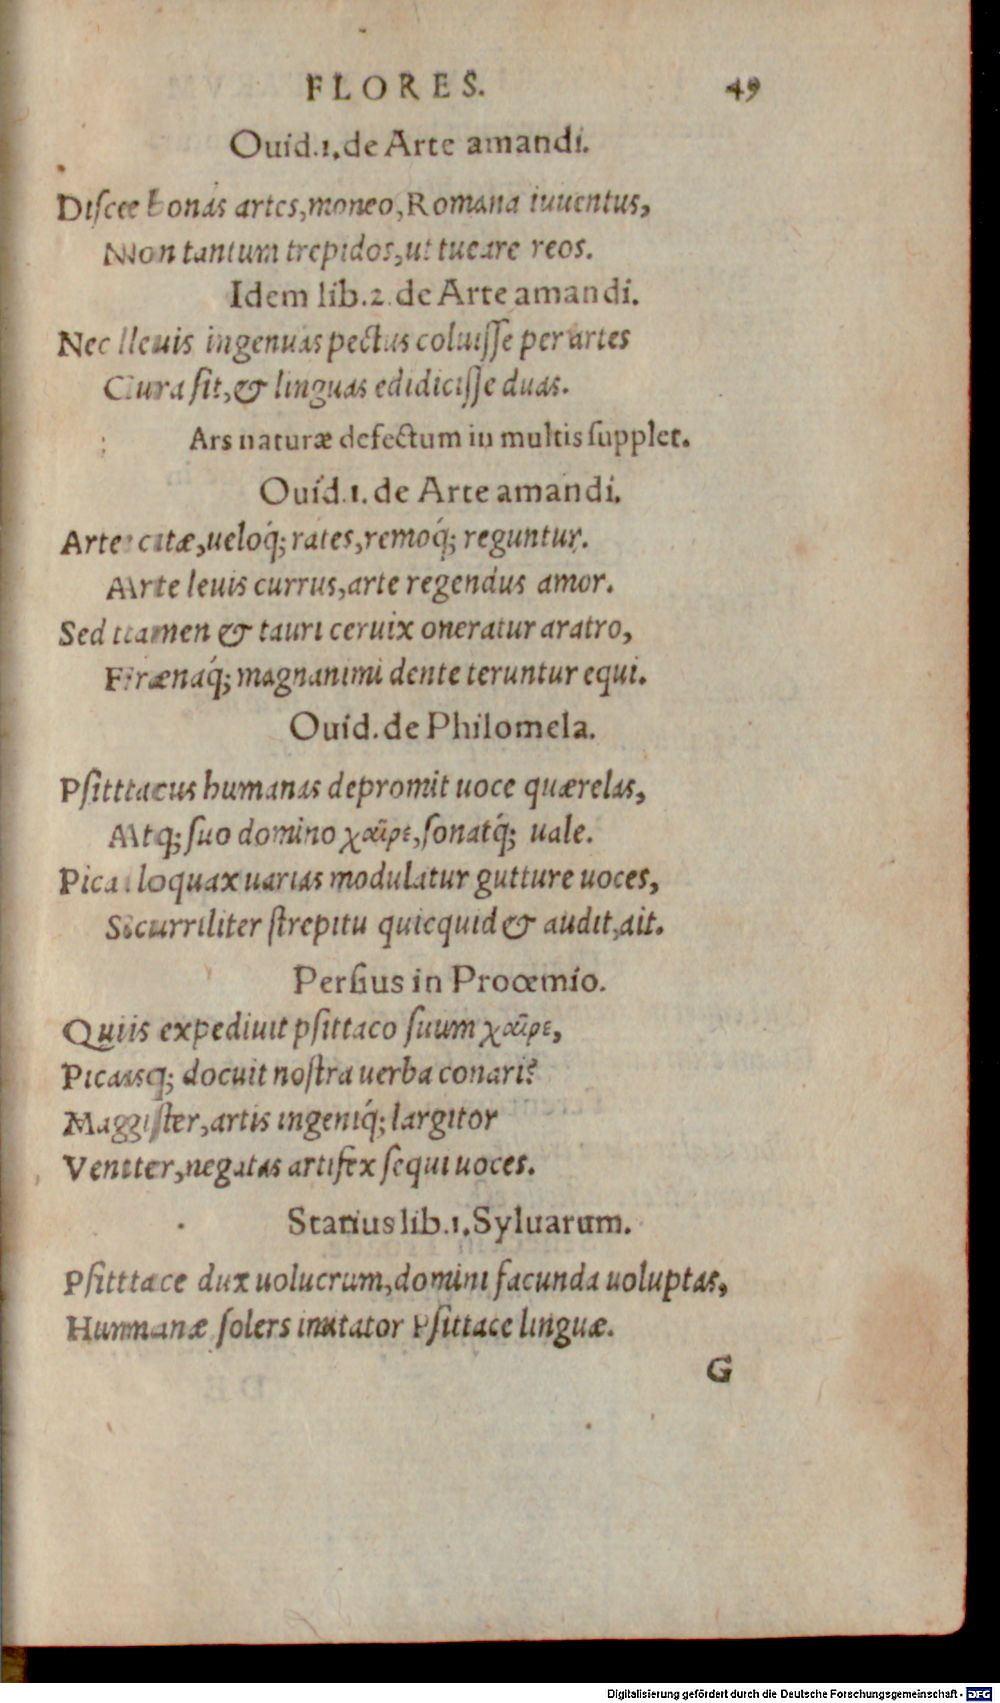 FLORES. 49
Ouid.1.de Arte amandi.
Disce bonas artes,moneo,Romana iuuentus,
Non tantum trepidos,ut tueare reos.
Idem lib.2.de Arte amandi.
Nec leuis ingenuas pectus coluiſſe per artes
Cura ſit,& linguas edidiciſſe duas.
Ars naturæ defectum in multis ſupplet.
Ouid.1.de Arte amandi.
Arte citæ,ueloq́; rates,remoq́; reguntur.
Arte leuis currus,arte regendus amor.
Sed tamen & tauri ceruix oneratur aratro,
Frænaq́; magnanimi dente teruntur equi.
Ouid.de Philomela.
Pſittacus humanas depromit uoce quærelas,
Atq; ſuo domino χαῖρε,ſonatq́; uale.
Pica loquax uarias modulatur gutture uoces,
Scurriliter ſtrepitu quicquid & audit,ait.
Perſius in Proœmio.
Quis expediuit pſittaco ſuum χαῖρε,
Picasq; docuit noſtra uerba conari?
Magiſter,artis ingeniq́; largitor
Venter,negatas artifex ſequi uoces.
Statius lib.1.Syluarum.
Pſittace dux uolucrum,domini facunda uoluptas,
Humanæ ſolers imitator Pſittace linguæ.
G
Digitalisierung gefördert durch die Deutsche Forschungsgemeinschaft - DFG